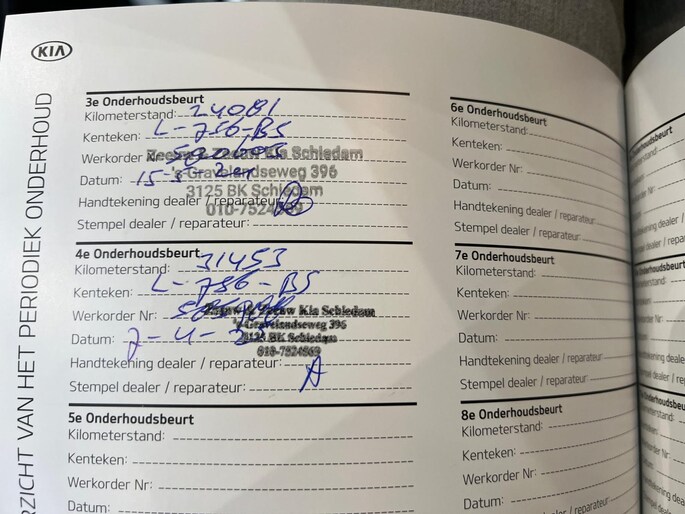 KIA
OVERZICHT VAN HET PERIODIEK ONDERHOUD
3e Onderhoudsbeurt
Kilometerstand: 24081
Kenteken: L-756-BS
Werkorder Nr:
Zeeuw Kia Schiedam
Datum: 15-5-
's Gravelandseweg 396
3125 BK Schiedam
Handtekening dealer / reparateur:
010-7524
Stempel dealer / reparateur:
4e Onderhoudsbeurt
Kilometerstand: 31453
Kenteken: L-756-BS
Werkorder Nr:
Zeeuw Kia Schiedam
's Gravelandseweg 396
Datum: 7-4-
3125 BK Schiedam
010-7524
Handtekening dealer / reparateur:
Stempel dealer / reparateur:
5e Onderhoudsbeurt
Kilometerstand:
Kenteken:
Werkorder Nr:
Datum:
6e Onderhoudsbeurt
Kilometerstand:
Kenteken:
Werkorder Nr:
Datum:
Handtekening dealer / reparateur:
Stempel dealer / reparateur:
7e Onderhoudsbeurt
Kilometerstand:
Kenteken:
Werkorder Nr:
Datum:
Handtekening dealer / reparateur:
Stempel dealer / reparateur:
8e Onderhoudsbeurt
Kilometerstand:
Kenteken:
Werkorder Nr:
Datum: